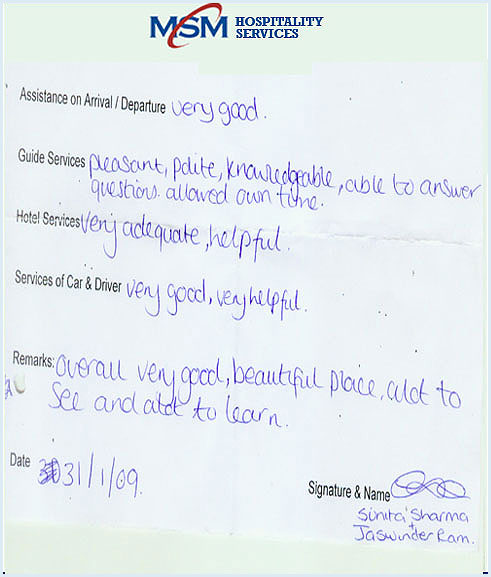 MSM HOSPITALITY
SERVICES
Assistance on Arrival / Departure very good.
Guide Services pleasant, polite, knowledgeable, able to answer
questions. allowed own time.
Hotel Services very adequate, helpful.
Services of Car & Driver very good, very helpful.
Remarks: overall very good, beautiful place, alot to
see and alot to learn.
Date 31/1/09.
Signature & Name
Sunita Sharma
+
Jaswinder Ram.